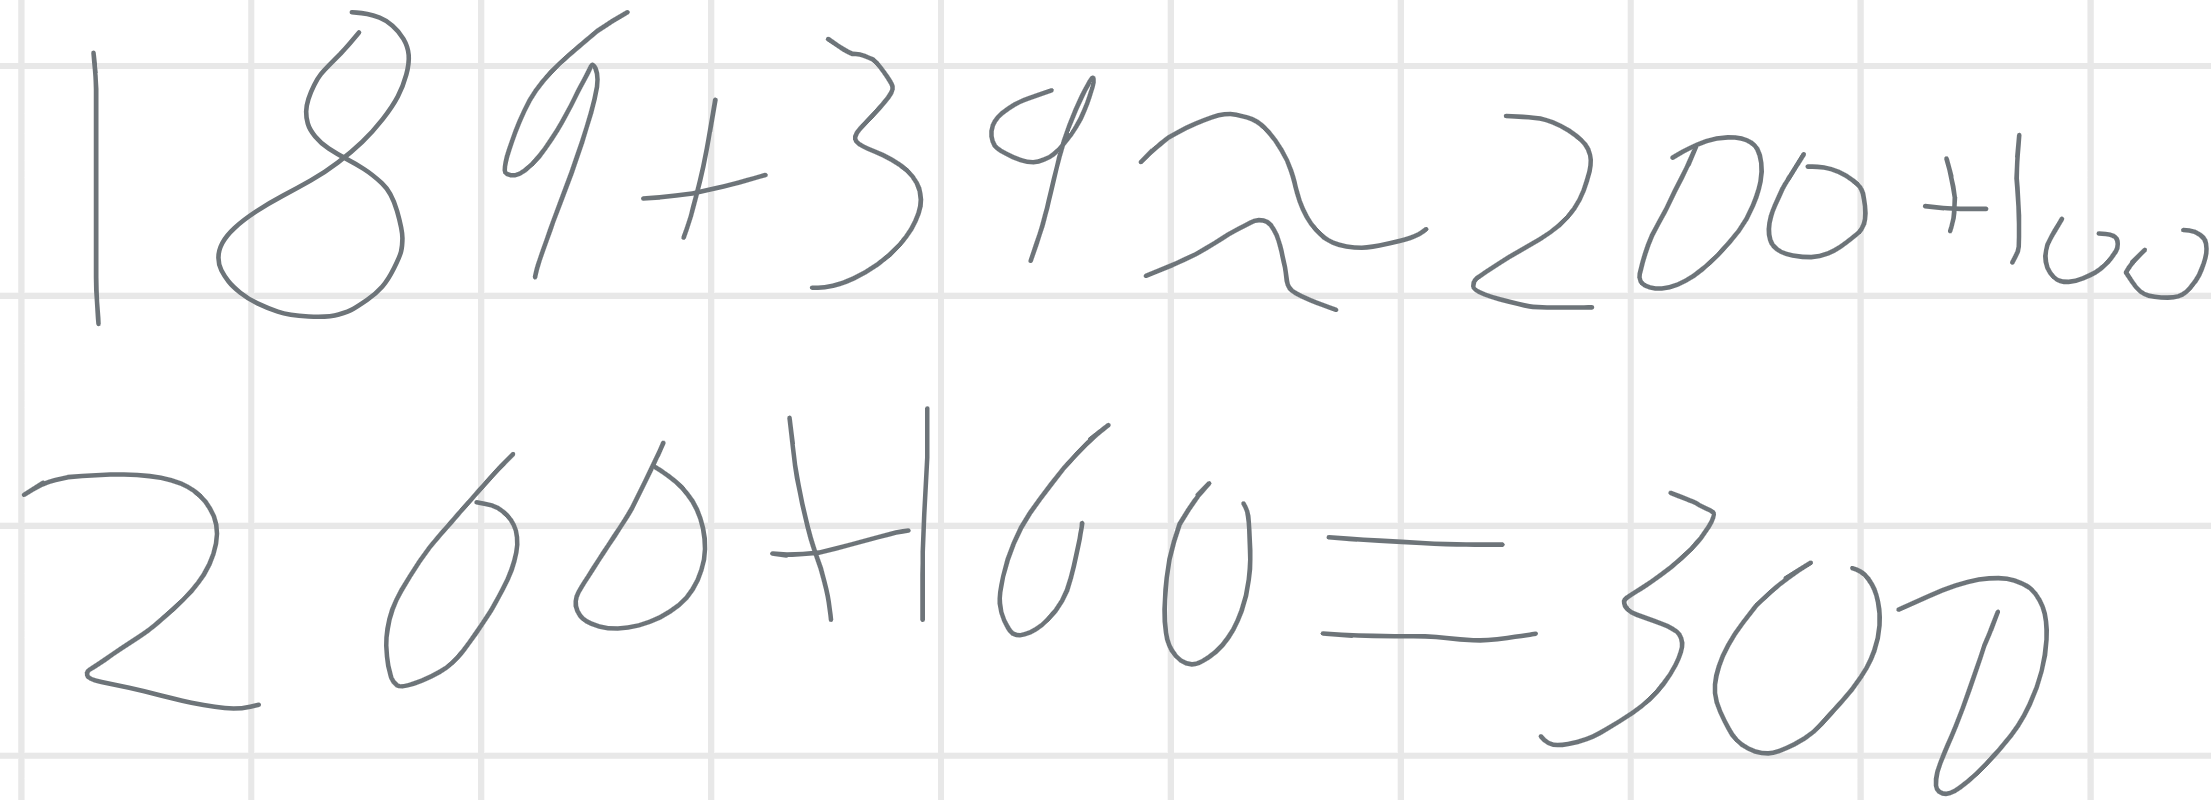 189+39≈200+100
200+100=300